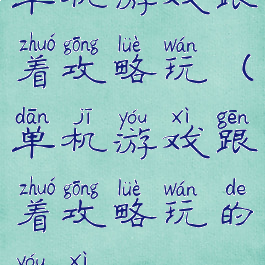 单机游戏跟
zhuó gōng lüè wán
着攻略玩（
dān jī yóu xì gēn
单机游戏跟
zhuó gōng lüè wán de
着攻略玩的
yóu xì